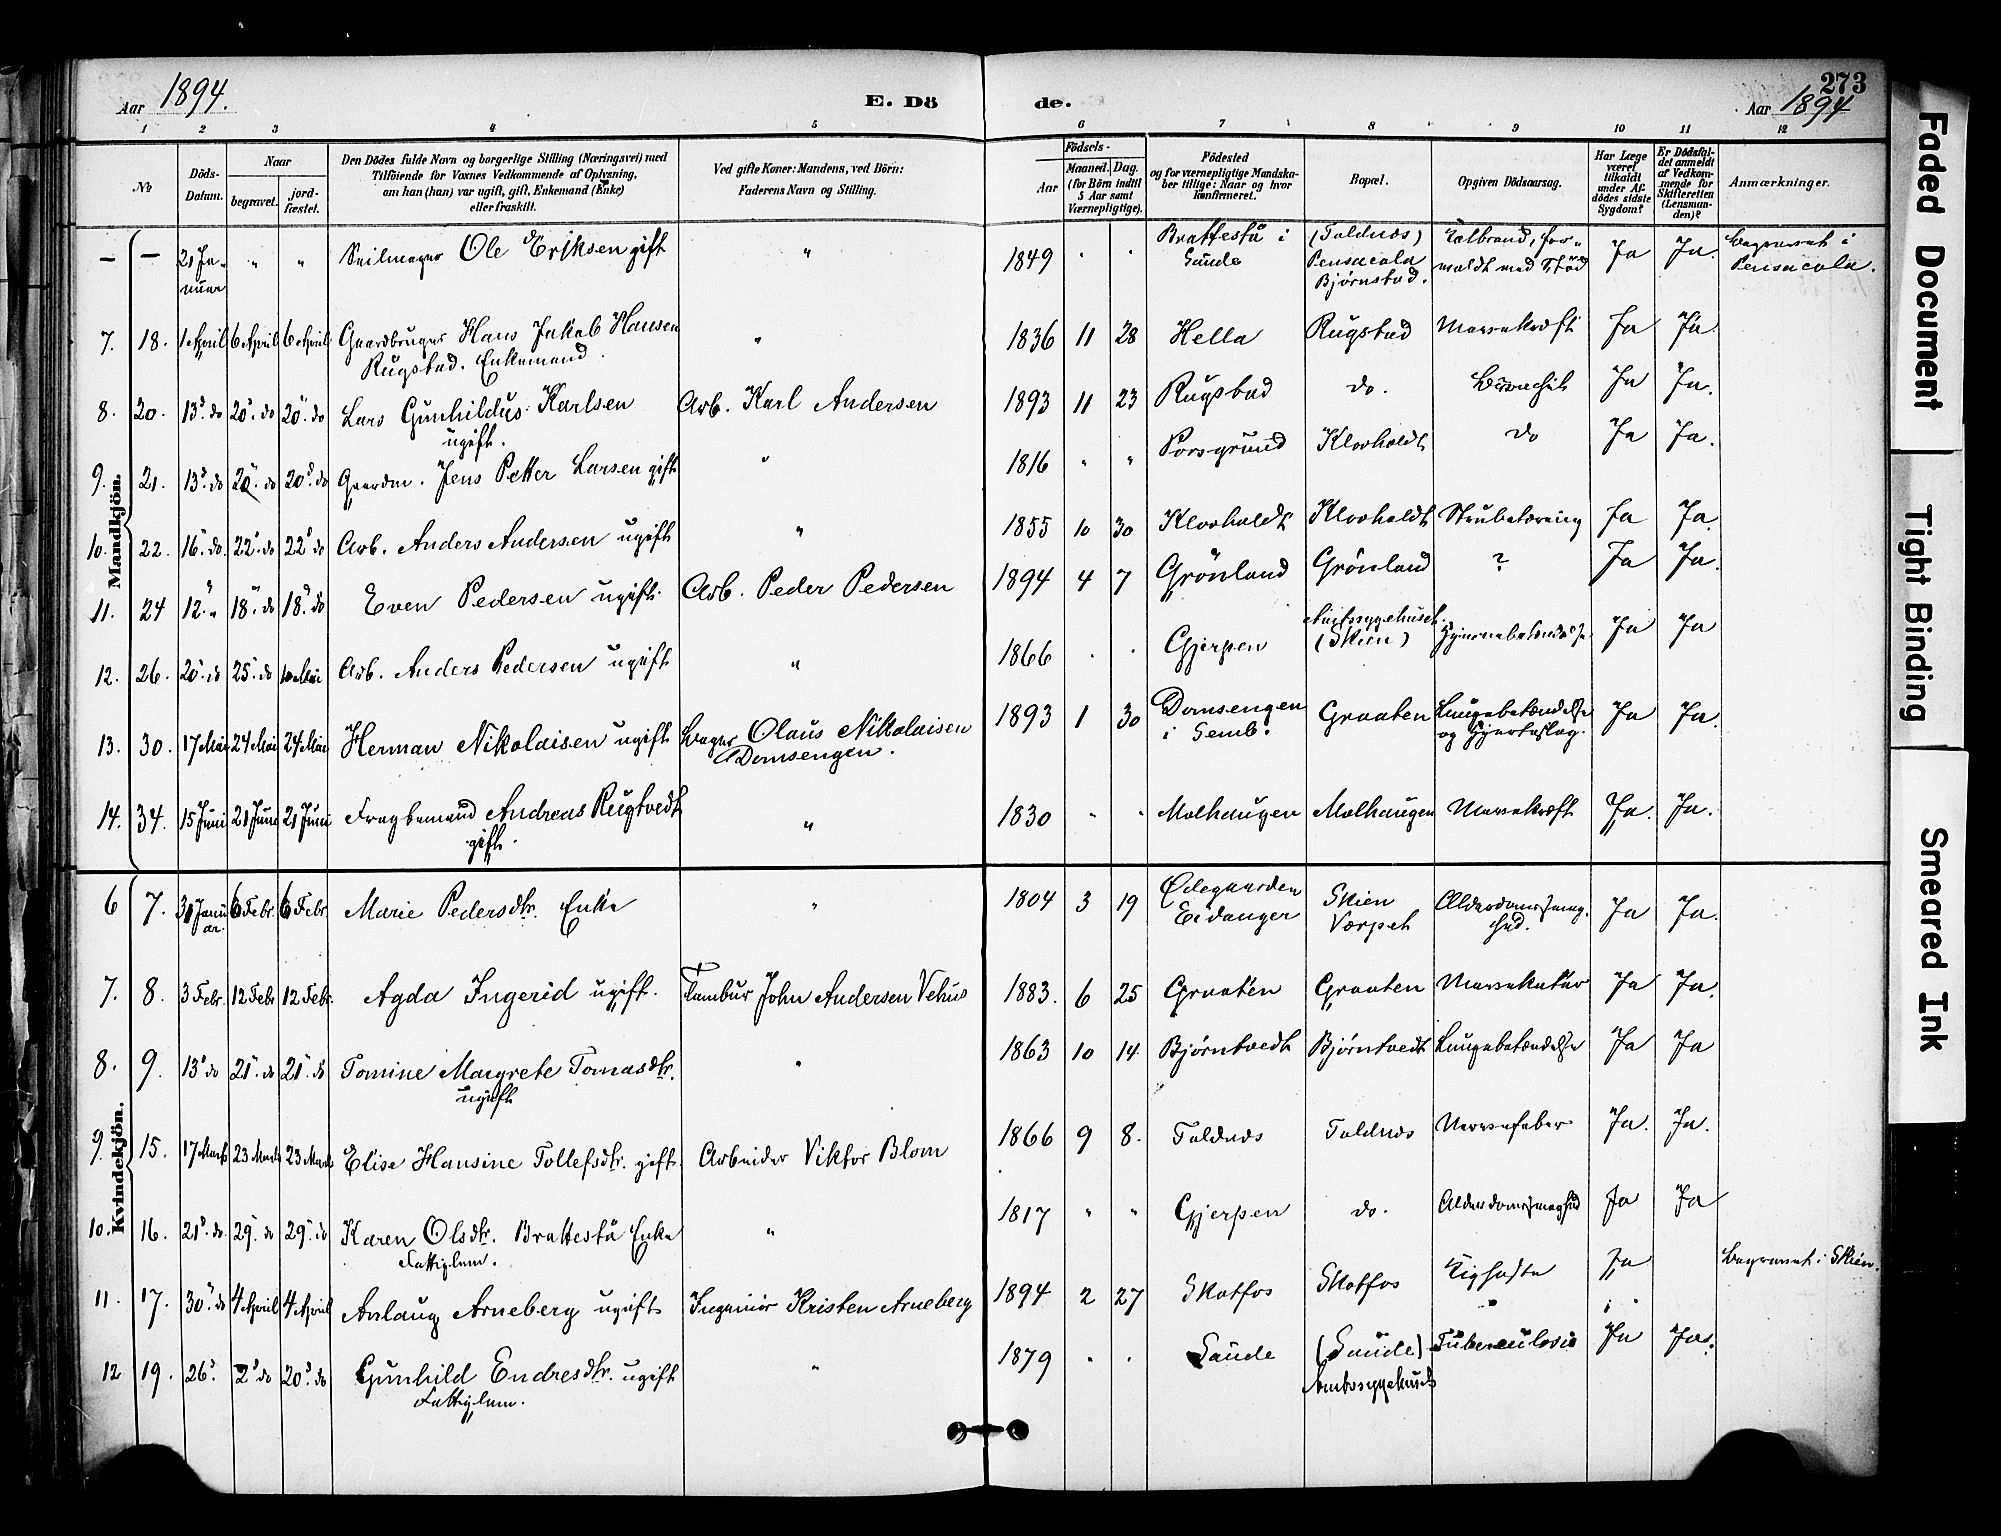 273
Aar 1894.
E. Dö de.
Aar 1894
1 2 3 4 5 6 7 8 9 10 11 12
No
Döds-Datum.
Naar
begravet.
jord-fæstet.
Den Dödes fulde Navn og borgerlige Stilling (Næringsvei) med
Tilföiende for Voxnes Vedkommende af Oplysning,
om han (hun) var ugift, gift, Enkemand (Enke)
eller fraskilt.
Ved gifte Koner: Mandens, ved Börn:
Faderens Navn og Stilling.
Födsels-
Aar
Maaned. Dag.
(for Börn indtil
5 Aar samt
Værnepligtige).
Födested
og for værnepligtige Mandska-
ber tillige: Naar og hvor
konfirmeret.
Bopæl.
Opgiven Dödsaarsag.
Har Læge
været
tilkaldt
under Af-
dödes sidste
Sygdom?
Er Dödsfal-
det anmeldt
af Vedkom-
mende for
Skifteretten
(Lensman-
den)?
Anmærkninger.
Mandkjön.
— — 21 Januar " " Seilmager Ole Eriksen gift " 1849 . . Brattestå i Saude (Foldnæs) Pensacola Bjørnstad. Ja Ja. Begravet i Pensacola.
7. 18. 1 April 6 April 6 April Gaardbruger Hans Jakob Hansen " 1836 11 28 Hella Rugstad Marsekræft Ja Ja
Rugstad. Enkemand.
8. 20. 13. do 20. do 20. do Lars Gunhildus Karlsen Arb. Karl Andersen 1893 11 23 Rugstad do. Ja Ja.
ugift.
9. 21. 13. do 20. do 20. do Gaardm. Jens Petter Larsen gift " 1816 " " Porsgrund Klovholdt do Ja Ja.
10. 22. 16. do. 22. do 22. do Arb. Anders Andersen ugift " 1855 10 30 Klovholdt Klovholdt Strubetæring Ja Ja.
11. 24 12. " 18. do 18. do Even Pedersen ugift. Arb. Peder Pedersen 1894 4 7 Grönland Grönland ? Ja Ja.
12. 26. 20. do 25. do Mai Arb. Anders Pedersen ugift " 1866 . . Gjerpen Amtssygehuset (Skien) Hjernebetændelse Ja Ja
13. 30. 17 Mai 24 Mai 24 Mai Herman Nikolaisen ugift Bager Olaus Nikolaisen 1893 1 30 Domsengen i Semb. Graaten Lungebetændelse og Hjerteslag. Ja Ja.
Domsengen.
14. 34. 15 Juni 21 Juni 21 Juni Fragtemand Andreas Rugtvedt " 1830 " " Mælhaugen Mælhaugen Marsekræft Ja. Ja.
gift.
Kvindekjön.
6 7. 31 Januar. 6 Febr. 6 Febr. Marie Pedersdtr. Enke " 1804 3 19 Ødegaarden Eidanger Skien Værpet Alderdomssvaghed. Ja Ja.
7. 8. 3 Febr. 12 Febr 12 Febr. Agda Ingerid ugift. Tambur John Andersen Vehus 1883. 6 25 Graaten Graaten Ja Ja.
8. 9. 13. do 21. do 21. do Tomine Margrete Tomasdtr. " 1863 10 14. Bjørntvedt Bjørntvedt Lungebetændelse Ja Ja
ugift
9. 15. 17 Marts 23 Marts 23 Marts Elise Hansine Tollefsdtr. gift. Arbeider Viktor Blom 1866 9 8. Foldnæs Foldnæs Ja. Ja.
10. 16. 21. do. 29. do 29. do Karen Olsdtr. Brattestå Enke " 1817 " " Gjerpen do. Alderdomssvaghed Ja Ja
Fattiglem.
11. 17. 30. do 4 April 4 April Aslaug Arneberg ugift Ingeniör Kristen Arneberg 1894 2 27 Skotfos Skotfos Ja Begravet i Skien.
12 19. 26. 2. do 20. do Gunhild Endresdtr. ugift " 1879 . . Saude (Saude) Amtssygehuset Tuberculosis Ja Ja.
Fattiglem.
Faded Document
Tight Binding
Smeared Ink